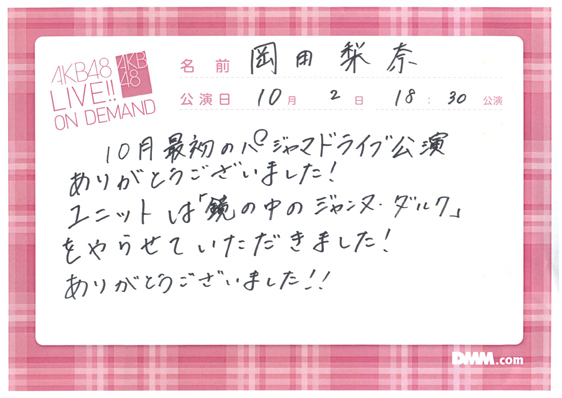 AKB48
LIVE!!
ON DEMAND
AKB
48
名前 岡田梨奈
公演日 10月 2日 18:30公演
10月最初のパジャマドライブ公演
ありがとうございました!
ユニットは「鏡の中のジャンヌ・ダルク」
をやらせていただきました!
ありがとうございました!!
DMM.com